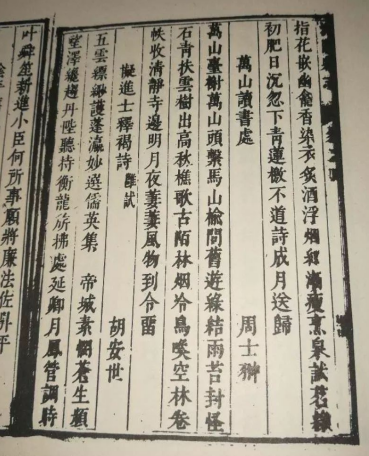 指花嵌幽龕香染衣炙酒浮烟和瀨瘦烹泉試茗
初肥日沉忽下青蓮檄不道詩成月送歸
萬山讀書處
周士翀
萬山臺榭萬山頭繫馬山榆問舊遊緣結雨苔封怪
石青扶雲樹出高秋樵歌古陌林烟冷鳥喚空林卷
帙收清靜寺邊明月夜萋萋風物到今留
擬進士釋褐詩 雕試
胡安世
五雲縹緲護蓬瀛妙選儒英集 帝城素慣蒼生願
望澤趨丹陛聽持衡龍旂拂處延卿月鳳管調時
叶舜笙新進小臣何所事願將廉法佐升平